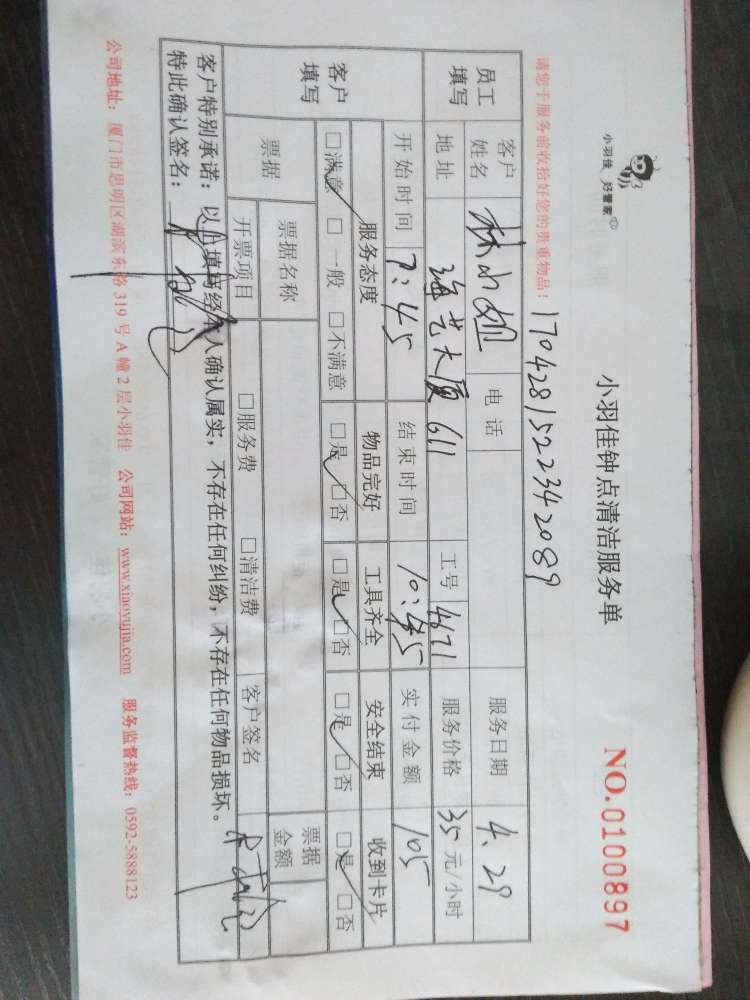 小羽佳 好管家
小羽佳钟点清洁服务单
NO.0100897
请您于服务前收拾好您的贵重物品!
1704281522342089
员工填写 客户姓名 林小姐 电话 服务日期 4.29
地址 海艺大厦611 工号 4671 服务价格 35元/小时
开始时间 7:45 结束时间 10:45 实付金额 105
客户填写 服务态度 物品完好 工具齐全 安全结束 收到卡片
□满意 □一般 □不满意 □是 □否 □是 □否 □是 □否 □是 □否
票据 票据名称 票据金额
开票项目 □服务费 □清洁费 客户签名
客户特别承诺:以上填写经本人确认属实,不存在任何纠纷,不存在任何物品损坏。
特此确认签名:
公司地址:厦门市思明区湖滨东路319号A幢2层小羽佳 公司网站:www.xiaoyujia.com 服务监督热线:0592-5888123